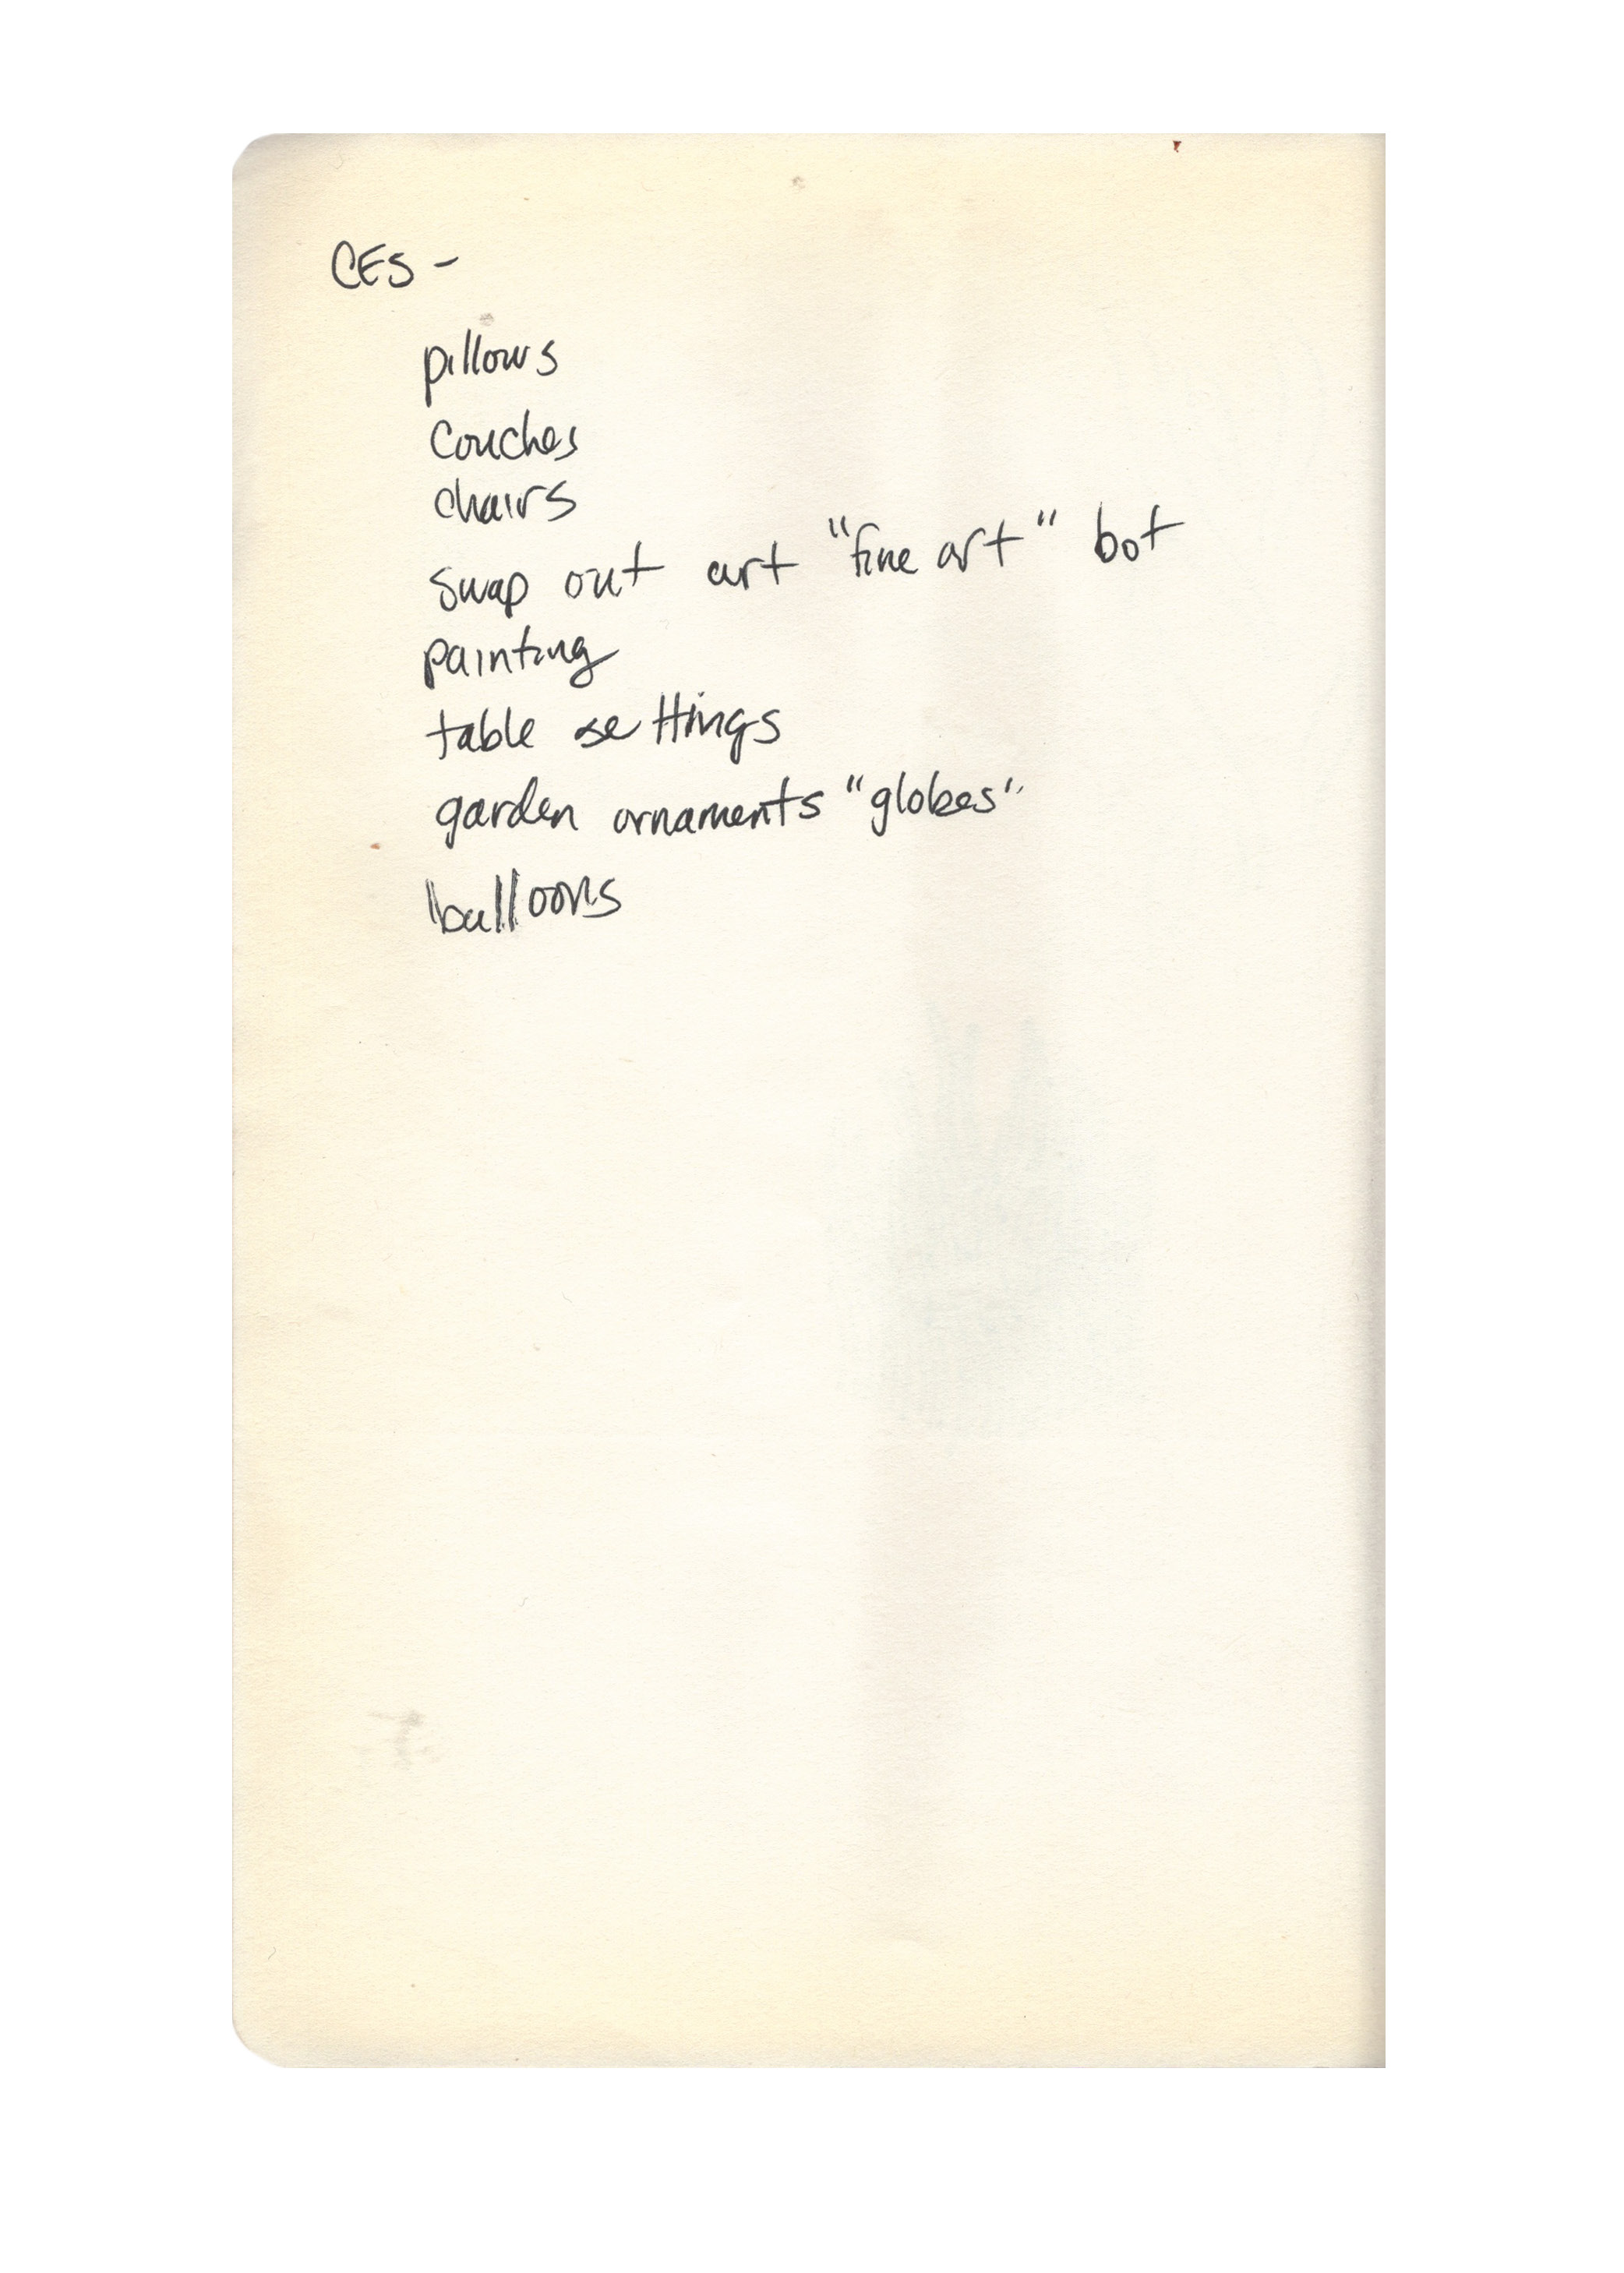 CES -
pillows
couches
chairs
swap out art "fine art" bot
painting
table settings
garden ornaments "globes"
balloons